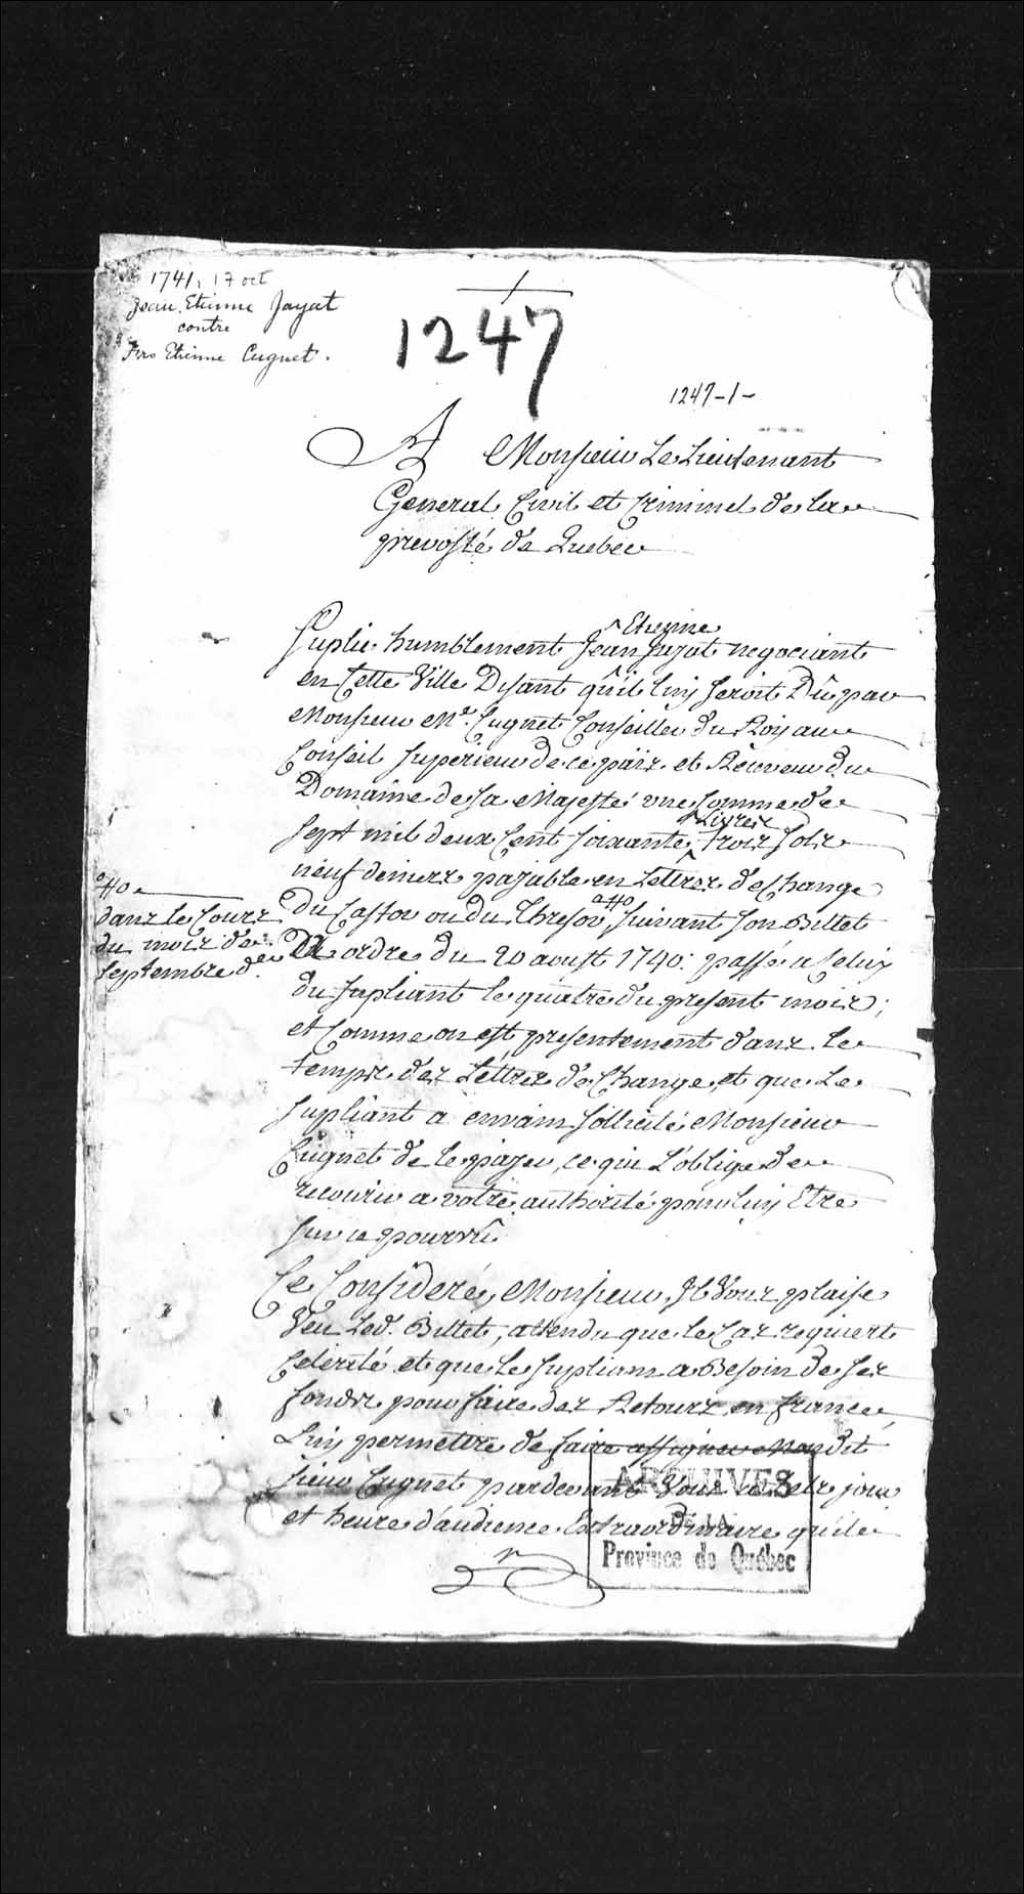 1741, 17 oct
Jean Etienne Jayat
contre
Frs Etienne Cugnet.
1247
1247-1-
A Monsieur Le Lieutenant
General Civil et Criminel de la
prevosté de Quebec
Suplie humblement Jean Etienne Jayat negociant
en Cette Ville Disant qu'il luy seroit Dû par
Monsieur Me. Cugnet Conseiller du Roy au
Conseil Superieur de ce païs et Receveur du
Domaine de sa Majesté une somme de
sept mil deux Cent soixante Livres trois sols
neuf deniers payable en Lettres de Change
Du Castor ou du Thresor, suivant son Billet
a ordre du 20 aoust 1740. passé a Celuy
du supliant le quatre du present mois;
et Comme on est presentement dans le
temps des Lettres de Change, et que Le
supliant a envain sollicité Monsieur
Cugnet de le payer, ce qui L'oblige de
recourir a votre authorité pour luy Etre
sur ce pourvû
dans le Cours
du mois de
septembre de
Ce Consideré, Monsieur, Il Vous plaise
Veu Led. Billet, attendu que le Cas requiert
Celerité et que le supliant a Besoin de ses
fonds pour faire des Retours en france,
Luy permettre de faire assigner Mondit
sieur Cugnet pardevant Vous a tels jour
et heure d'audience Extraordinaire qu'il
ARCHIVES
DE LA
Province de Québec